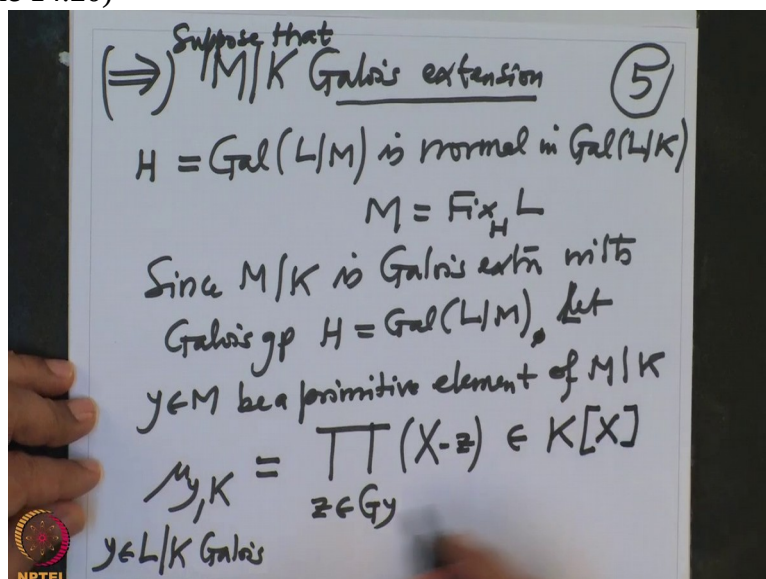 Suppose that
(⇒) M|K Galois extension ⑤
H = Gal(L|M) is normal in Gal(L|K)
M = Fix_H L
Since M|K is Galois extn with
Galois gp H = Gal(L|M). Let
y∈M be a primitive element of M|K
μ_{y,K} = ∏_{z∈Gy} (X-z) ∈ K[X]
y∈L|K Galois
NPTEL